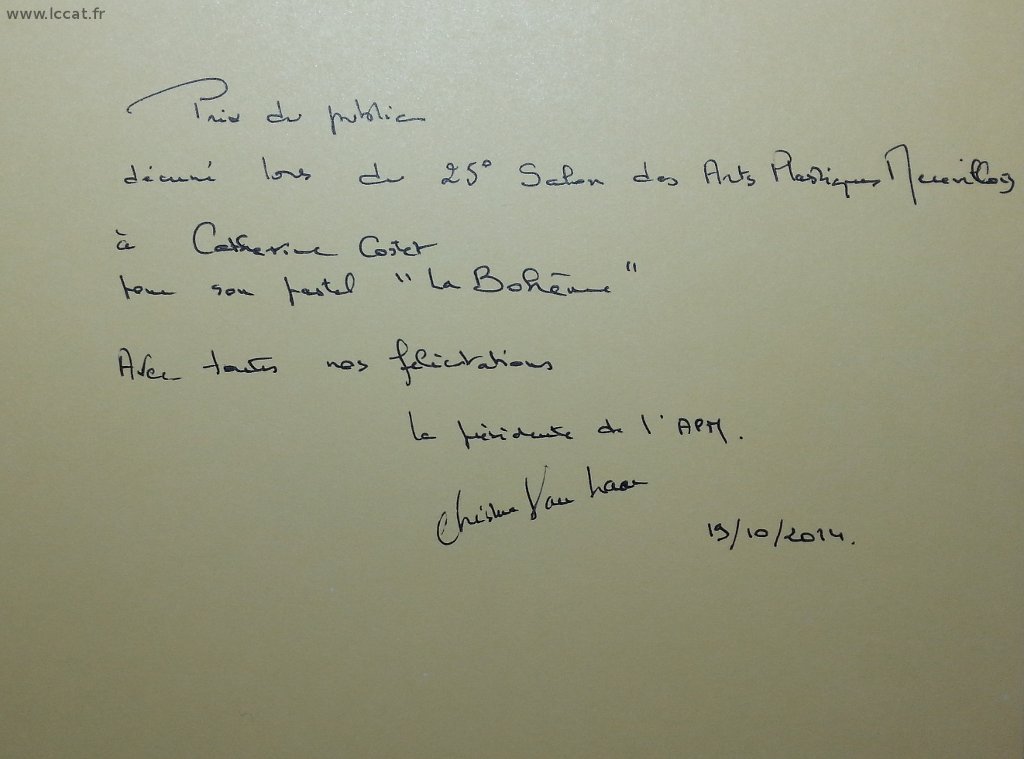 www.lccat.fr
Prix du public
décerné lors du 25° Salon des Arts Plastiques Merevillois
à Catherine Costet
pour son pastel "La Bohème"
Avec toutes nos félicitations
la présidente de l'APM.
Van Laar
19/10/2014.